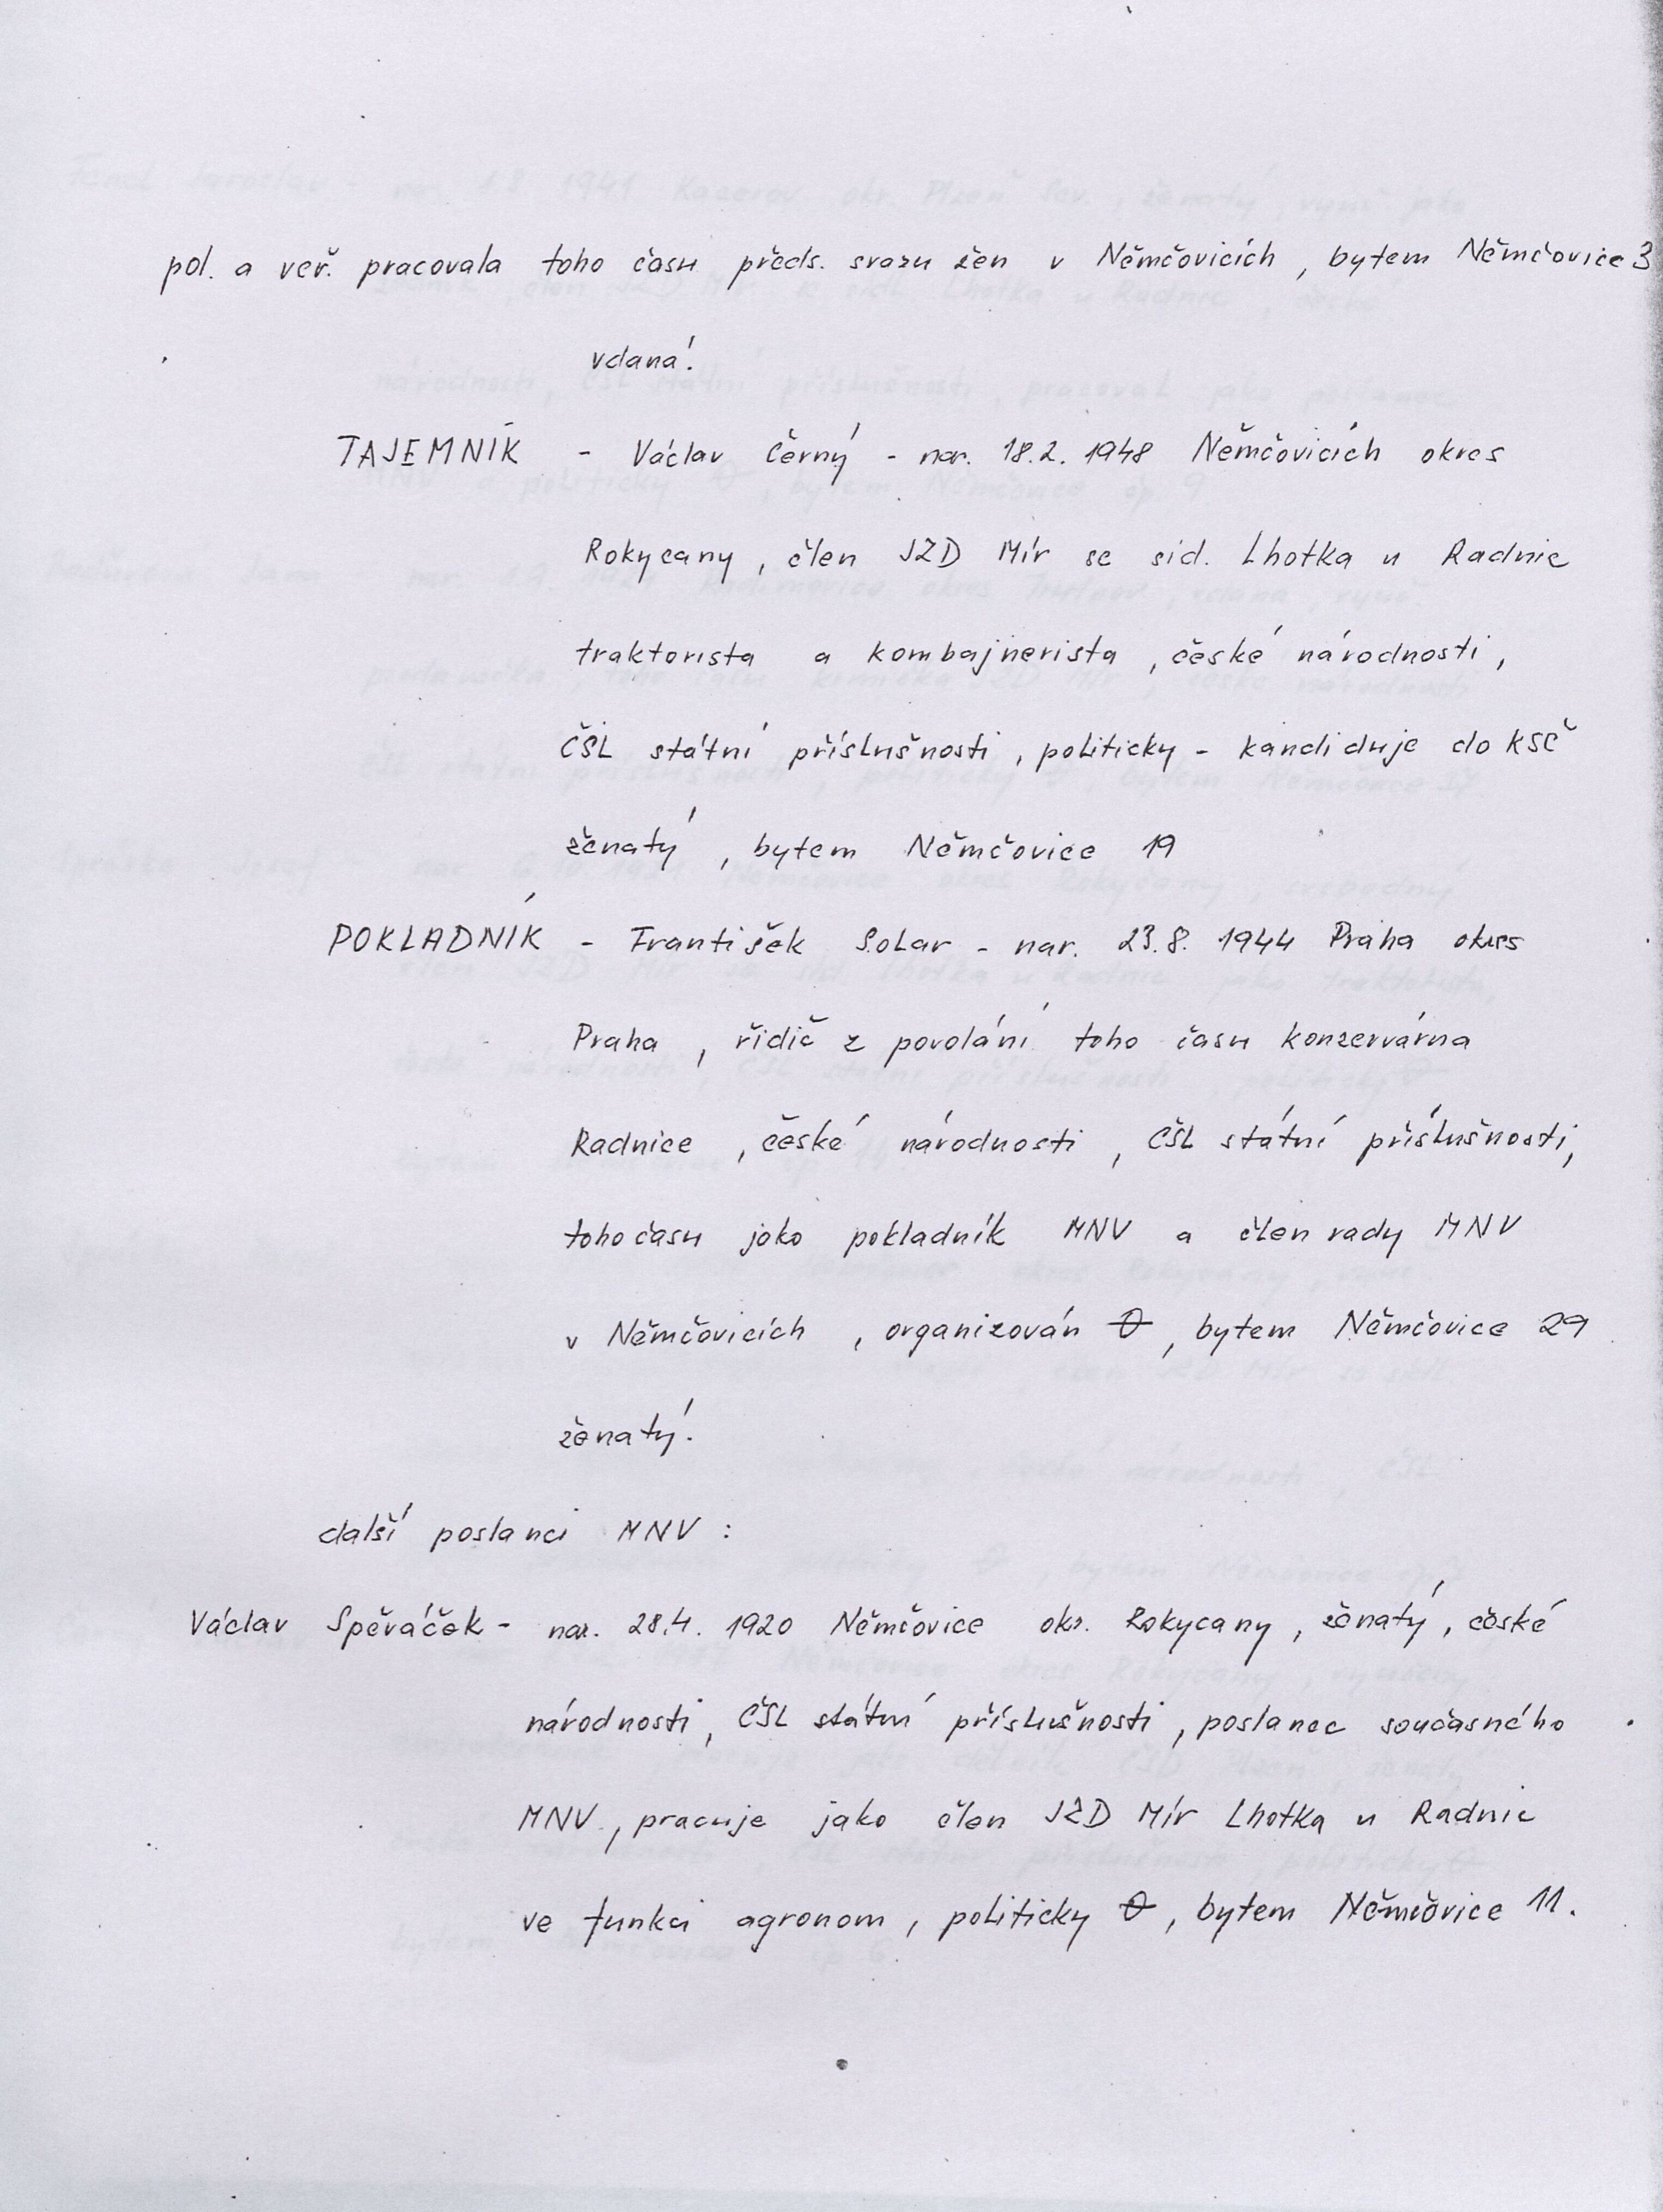 pol. a veř. pracovala toho času předs. svazu žen v Němčovicích, bytem Němčovice 3
vdaná.
TAJEMNÍK - Václav Černý - nar. 18.2. 1948 Němčovicích okres
Rokycany, člen JZD Mír se síd. Lhotka u Radnic
traktorista a kombajnerista, české národnosti,
ČSL státní příslušnosti, politicky - kandiduje do KSČ
ženatý, bytem Němčovice 19
POKLADNÍK - František Solar - nar. 23.8. 1944 Praha okres
Praha, řidič z povolání toho času konzervárna
Radnice, české národnosti, ČSL státní příslušnosti,
toho času jako pokladník MNV a člen rady MNV
v Němčovicích, organizován 0, bytem Němčovice 29
ženatý.
další poslanci MNV :
Václav Spěváček - nar. 28.4. 1920 Němčovice okr. Rokycany, ženatý, české
národnosti, ČSL státní příslušnosti, poslanec současného
MNV, pracuje jako člen JZD Mír Lhotka u Radnic
ve funkci agronom, politicky 0, bytem Němčovice 11.